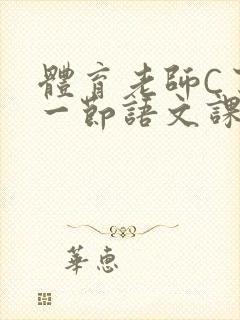 體育老師C了
一節語文課
華惠